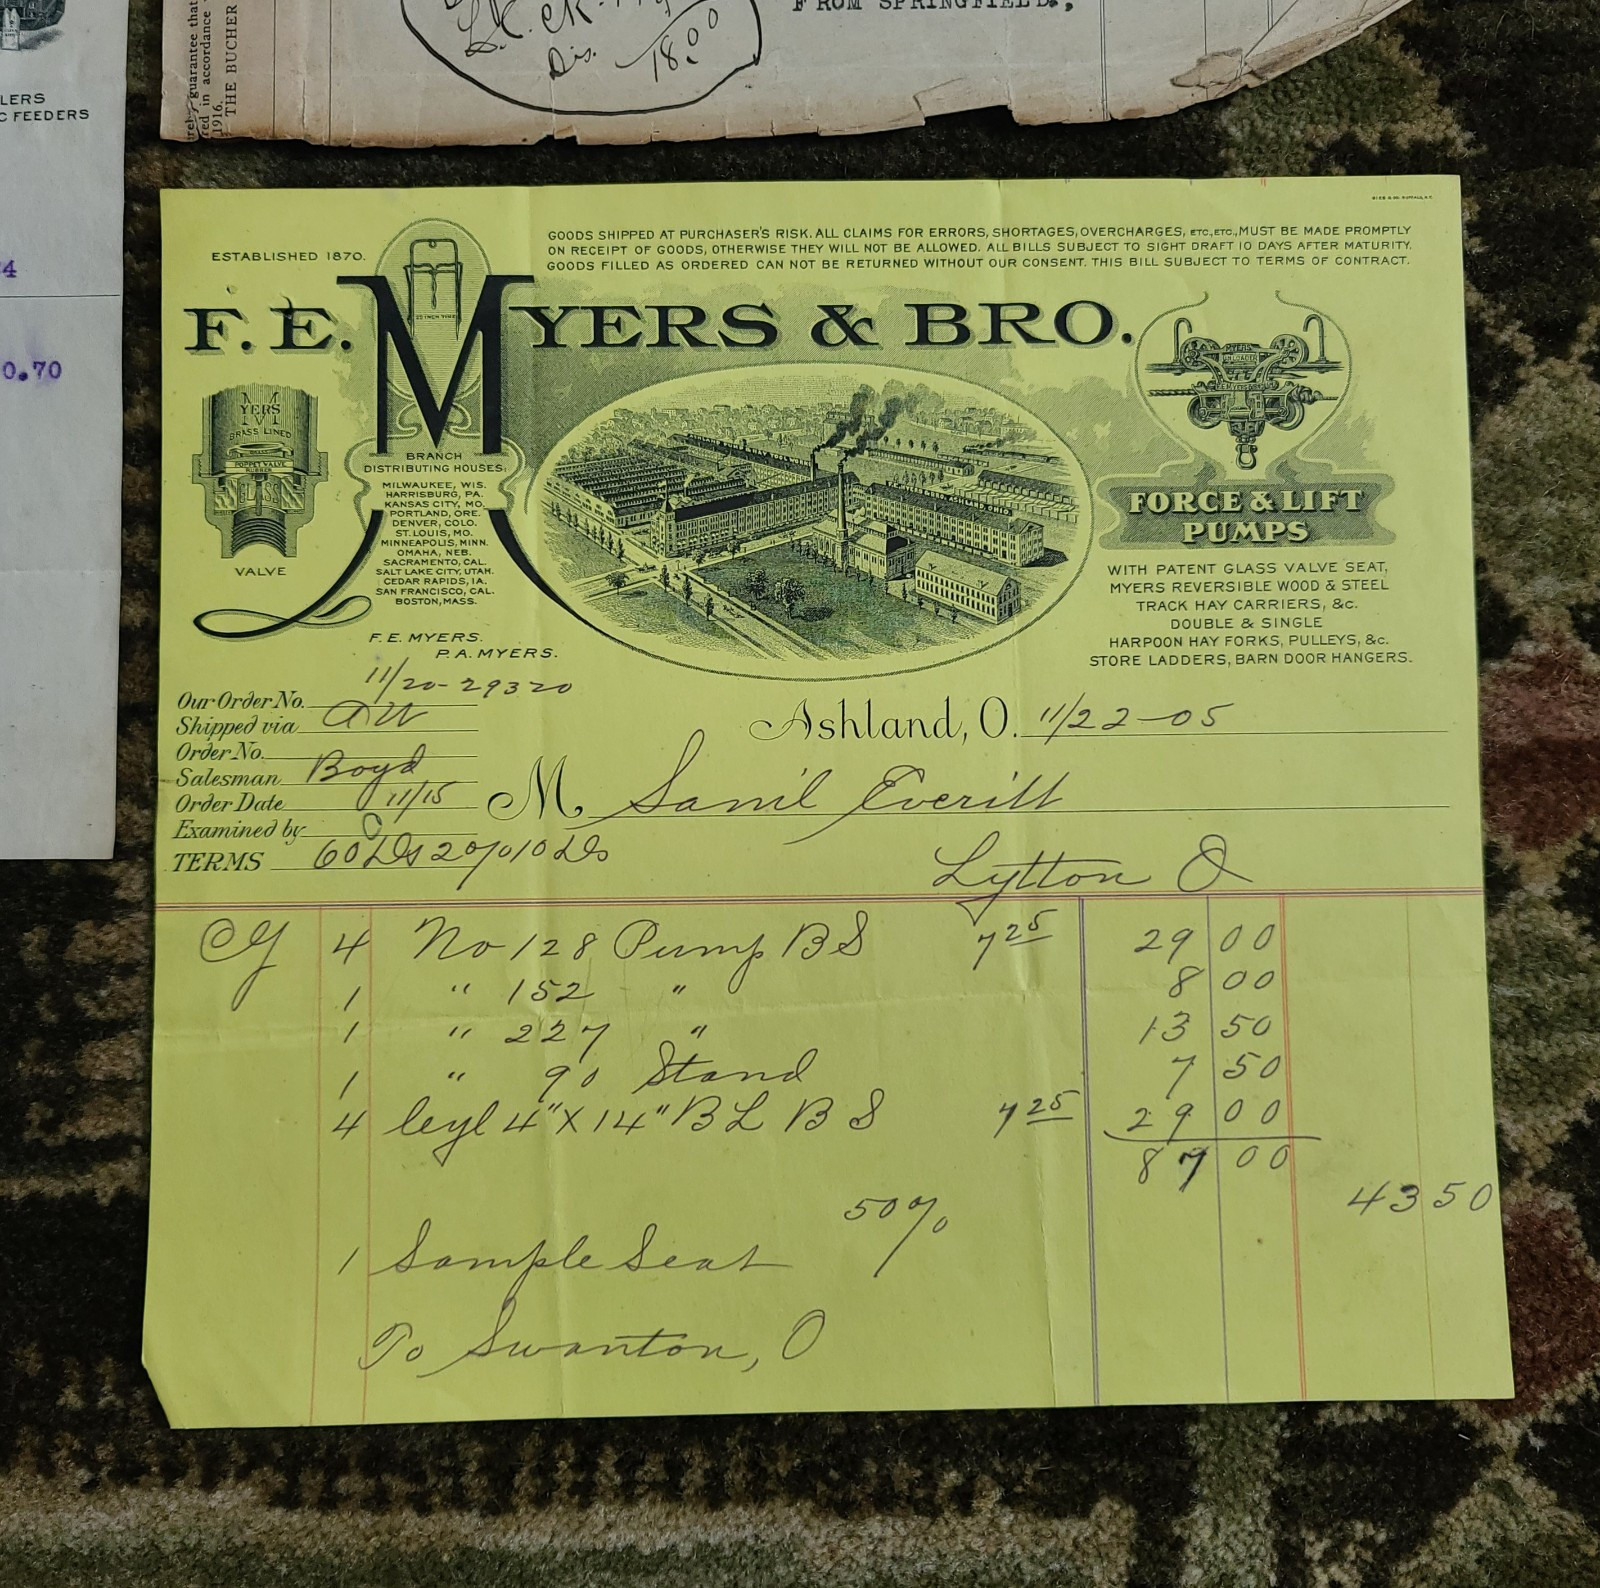 LERS
C FEEDERS
4
0.70
guarantee that
red in accordance
1916.
THE BUCHER
Dis. 18.00
FROM SPRINGFIELD.,
ESTABLISHED 1870.
GOODS SHIPPED AT PURCHASER'S RISK. ALL CLAIMS FOR ERRORS, SHORTAGES, OVERCHARGES, ETC., ETC., MUST BE MADE PROMPTLY
ON RECEIPT OF GOODS, OTHERWISE THEY WILL NOT BE ALLOWED. ALL BILLS SUBJECT TO SIGHT DRAFT 10 DAYS AFTER MATURITY.
GOODS FILLED AS ORDERED CAN NOT BE RETURNED WITHOUT OUR CONSENT. THIS BILL SUBJECT TO TERMS OF CONTRACT.
F. E. MYERS & BRO.
MYERS
BRASS LINED
POPPET VALVE
RUBBER
GLASS
VALVE
BRANCH
DISTRIBUTING HOUSES:
MILWAUKEE, WIS.
HARRISBURG, PA.
KANSAS CITY, MO.
PORTLAND, ORE.
DENVER, COLO.
ST. LOUIS, MO.
MINNEAPOLIS, MINN.
OMAHA, NEB.
SACRAMENTO, CAL.
SALT LAKE CITY, UTAH.
CEDAR RAPIDS, IA.
SAN FRANCISCO, CAL.
BOSTON, MASS.
F. E. MYERS.
P. A. MYERS.
MYERS
UNLOADER
FORCE & LIFT
PUMPS
WITH PATENT GLASS VALVE SEAT,
MYERS REVERSIBLE WOOD & STEEL
TRACK HAY CARRIERS, &c.
DOUBLE & SINGLE
HARPOON HAY FORKS, PULLEYS, &c.
STORE LADDERS, BARN DOOR HANGERS.
Our Order No. 11/20-29320
Shipped via
Order No.
Salesman Boyd
Order Date 11/15
Examined by
TERMS 60 Ds 2% 10 Ds
Ashland, O. 11/22-05
M Saml Everitt
Lytton O
4 No 128 Pump B S 7 25 29 00
1 " 152 " 8 00
1 " 227 " 13 50
1 " 90 Stand 7 50
4 Cyl 4" X 14" B L B S 7 25 29 00
87 00
50% 43 50
1 Sample Seat
To Swanton, O